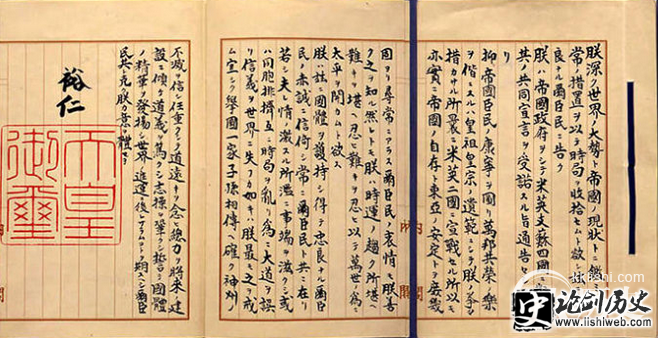 朕深ク世界ノ大勢ト帝國ノ現状トニ鑑
常ノ措置ヲ以テ時局ヲ收拾セムト欲
良ナル爾臣民ニ告ク
朕ハ帝國政府ヲシテ米英支蘇四國ニ
其ノ共同宣言ヲ受諾スル旨通告セ
リ
抑帝國臣民ノ康寧ヲ圖リ萬邦共榮ノ樂
ヲ偕ニスルハ皇祖皇宗ノ遺範ニシテ朕ノ拳々
措カサル所曩ニ米英二國ニ宣戰セル所以モ
亦實ニ帝國ノ自存ト東亞ノ安定トヲ庶幾
固ヨリ尋常ニアラス爾臣民ノ衷情モ朕善
ク之ヲ知ル然レトモ朕ハ時運ノ趨ク所堪ヘ
難キヲ堪ヘ忍ヒ難キヲ忍ヒ以テ萬世ノ爲ニ
太平ヲ開カムト欲ス
朕ハ茲ニ國體ヲ護持シ得テ忠良ナル爾臣
民ノ赤誠ニ信倚シ常ニ爾臣民ト共ニ在リ
若シ夫レ情ノ激スル所濫ニ事端ヲ滋クシ或
ハ同胞排擠互ニ時局ヲ亂リ爲ニ大道ヲ誤
リ信義ヲ世界ニ失フカ如キハ朕最モ之ヲ戒
ム宜シク擧國一家子孫相傳ヘ確ク神州ノ
不滅ヲ信シ任重クシテ道遠キヲ念ヒ總力ヲ將來ノ建
設ニ傾ケ道義ヲ篤クシ志操ヲ鞏クシ誓テ國體
ノ精華ヲ發揚シ世界ノ進運ニ後レサラムコトヲ期スヘシ爾臣
民其レ克ク朕カ意ヲ體セヨ
裕仁
天皇
御璽
内閣
史 论剑历史
www.iishiweb.com